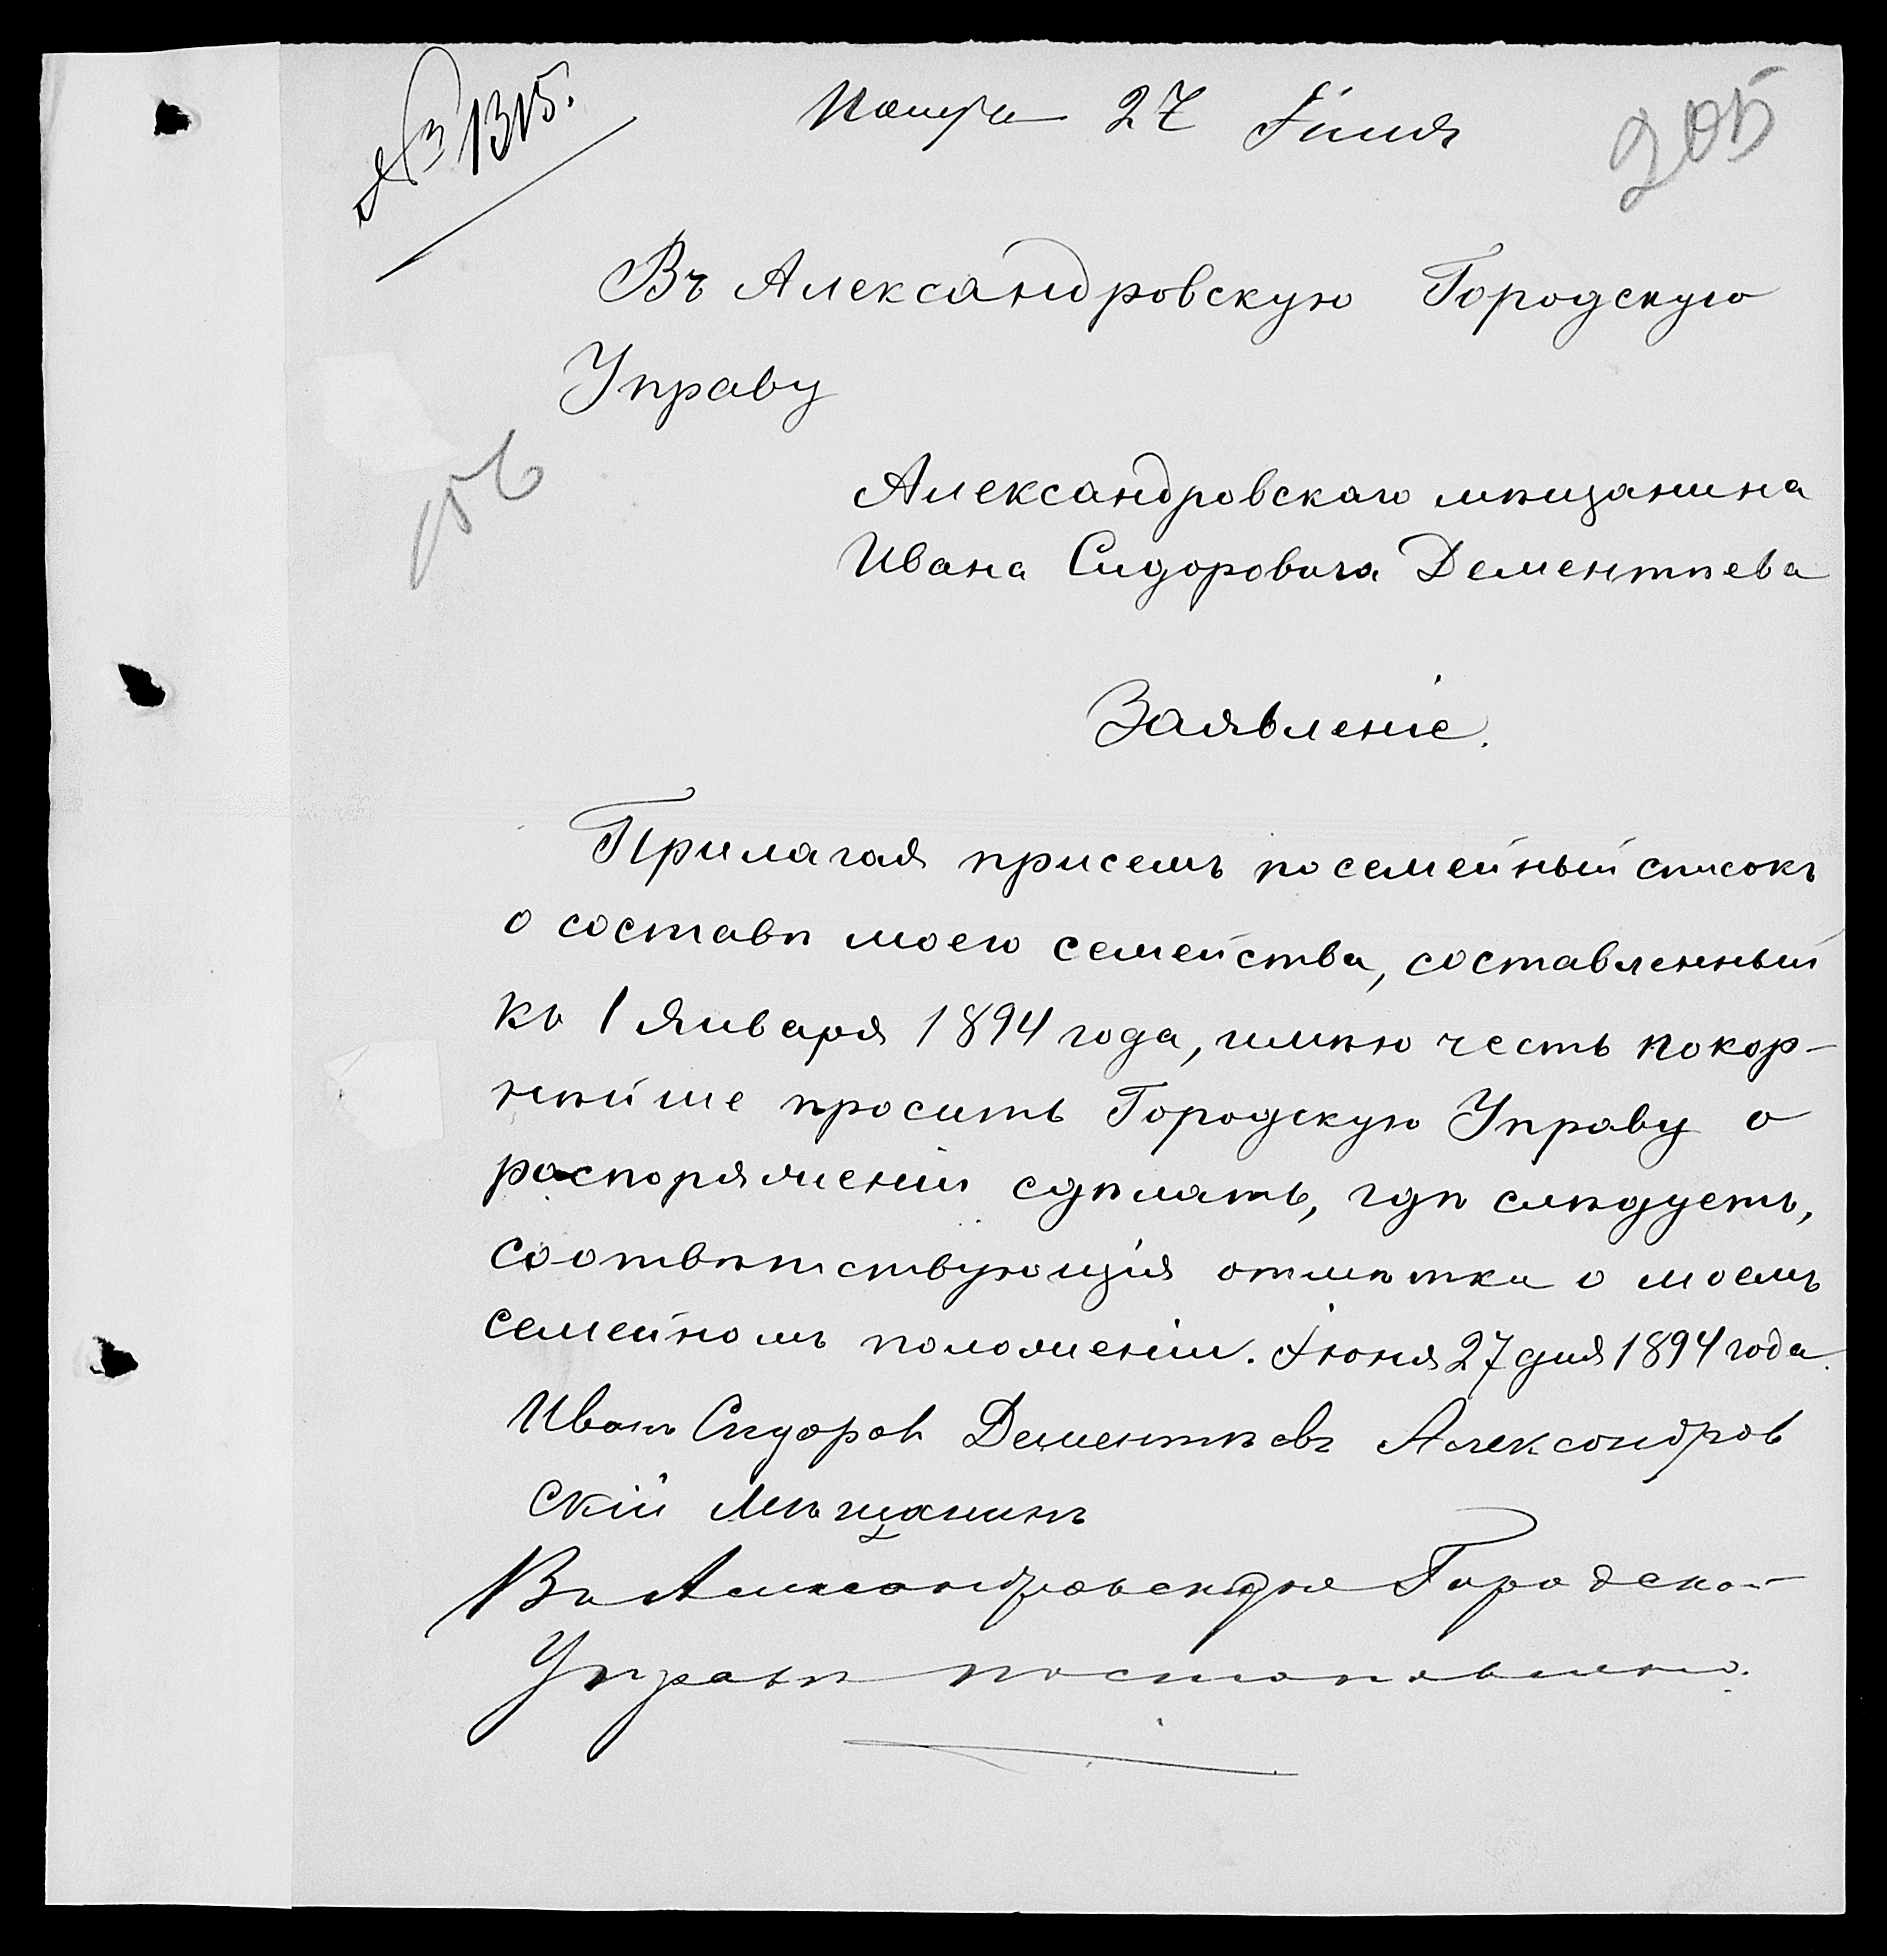 № 1315.
27 Іюня
205
Въ Александровскую Городскую
Управу
Александровскаго мѣщанина
Ивана Сидоровича Дементьева
Заявленіе.
Прилагая присемъ посемейный списокъ
о составѣ моего семейства, составленный
къ 1 Января 1894 года, имѣю честь покор-
нѣйше просить Городскую Управу о
распоряженіи сдѣлать, гдѣ слѣдуетъ,
соотвѣтствующія отмѣтки о моемъ
семейномъ положеніи. Іюня 27 дня 1894 года.
Иванъ Сидоров Дементьевъ Александров
скій Мѣщанинъ
Въ Городской
Управѣ